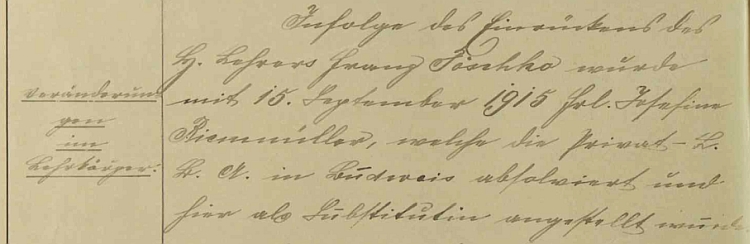 Veränderun
gen
im
Lehrkörper.
Infolge des Einrückens des
H. Lehrers Franz Poschko wurde
mit 15. September 1915 Frl. Josefine
Riemmüller, welche die Privat-L.
B. A. in Budweis absolviert und
hier als Substitutin angestellt wurde